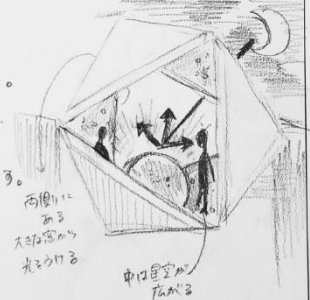 。
す。
両側に
ある
大きな窓から
光をうける
中は星空が
広がる